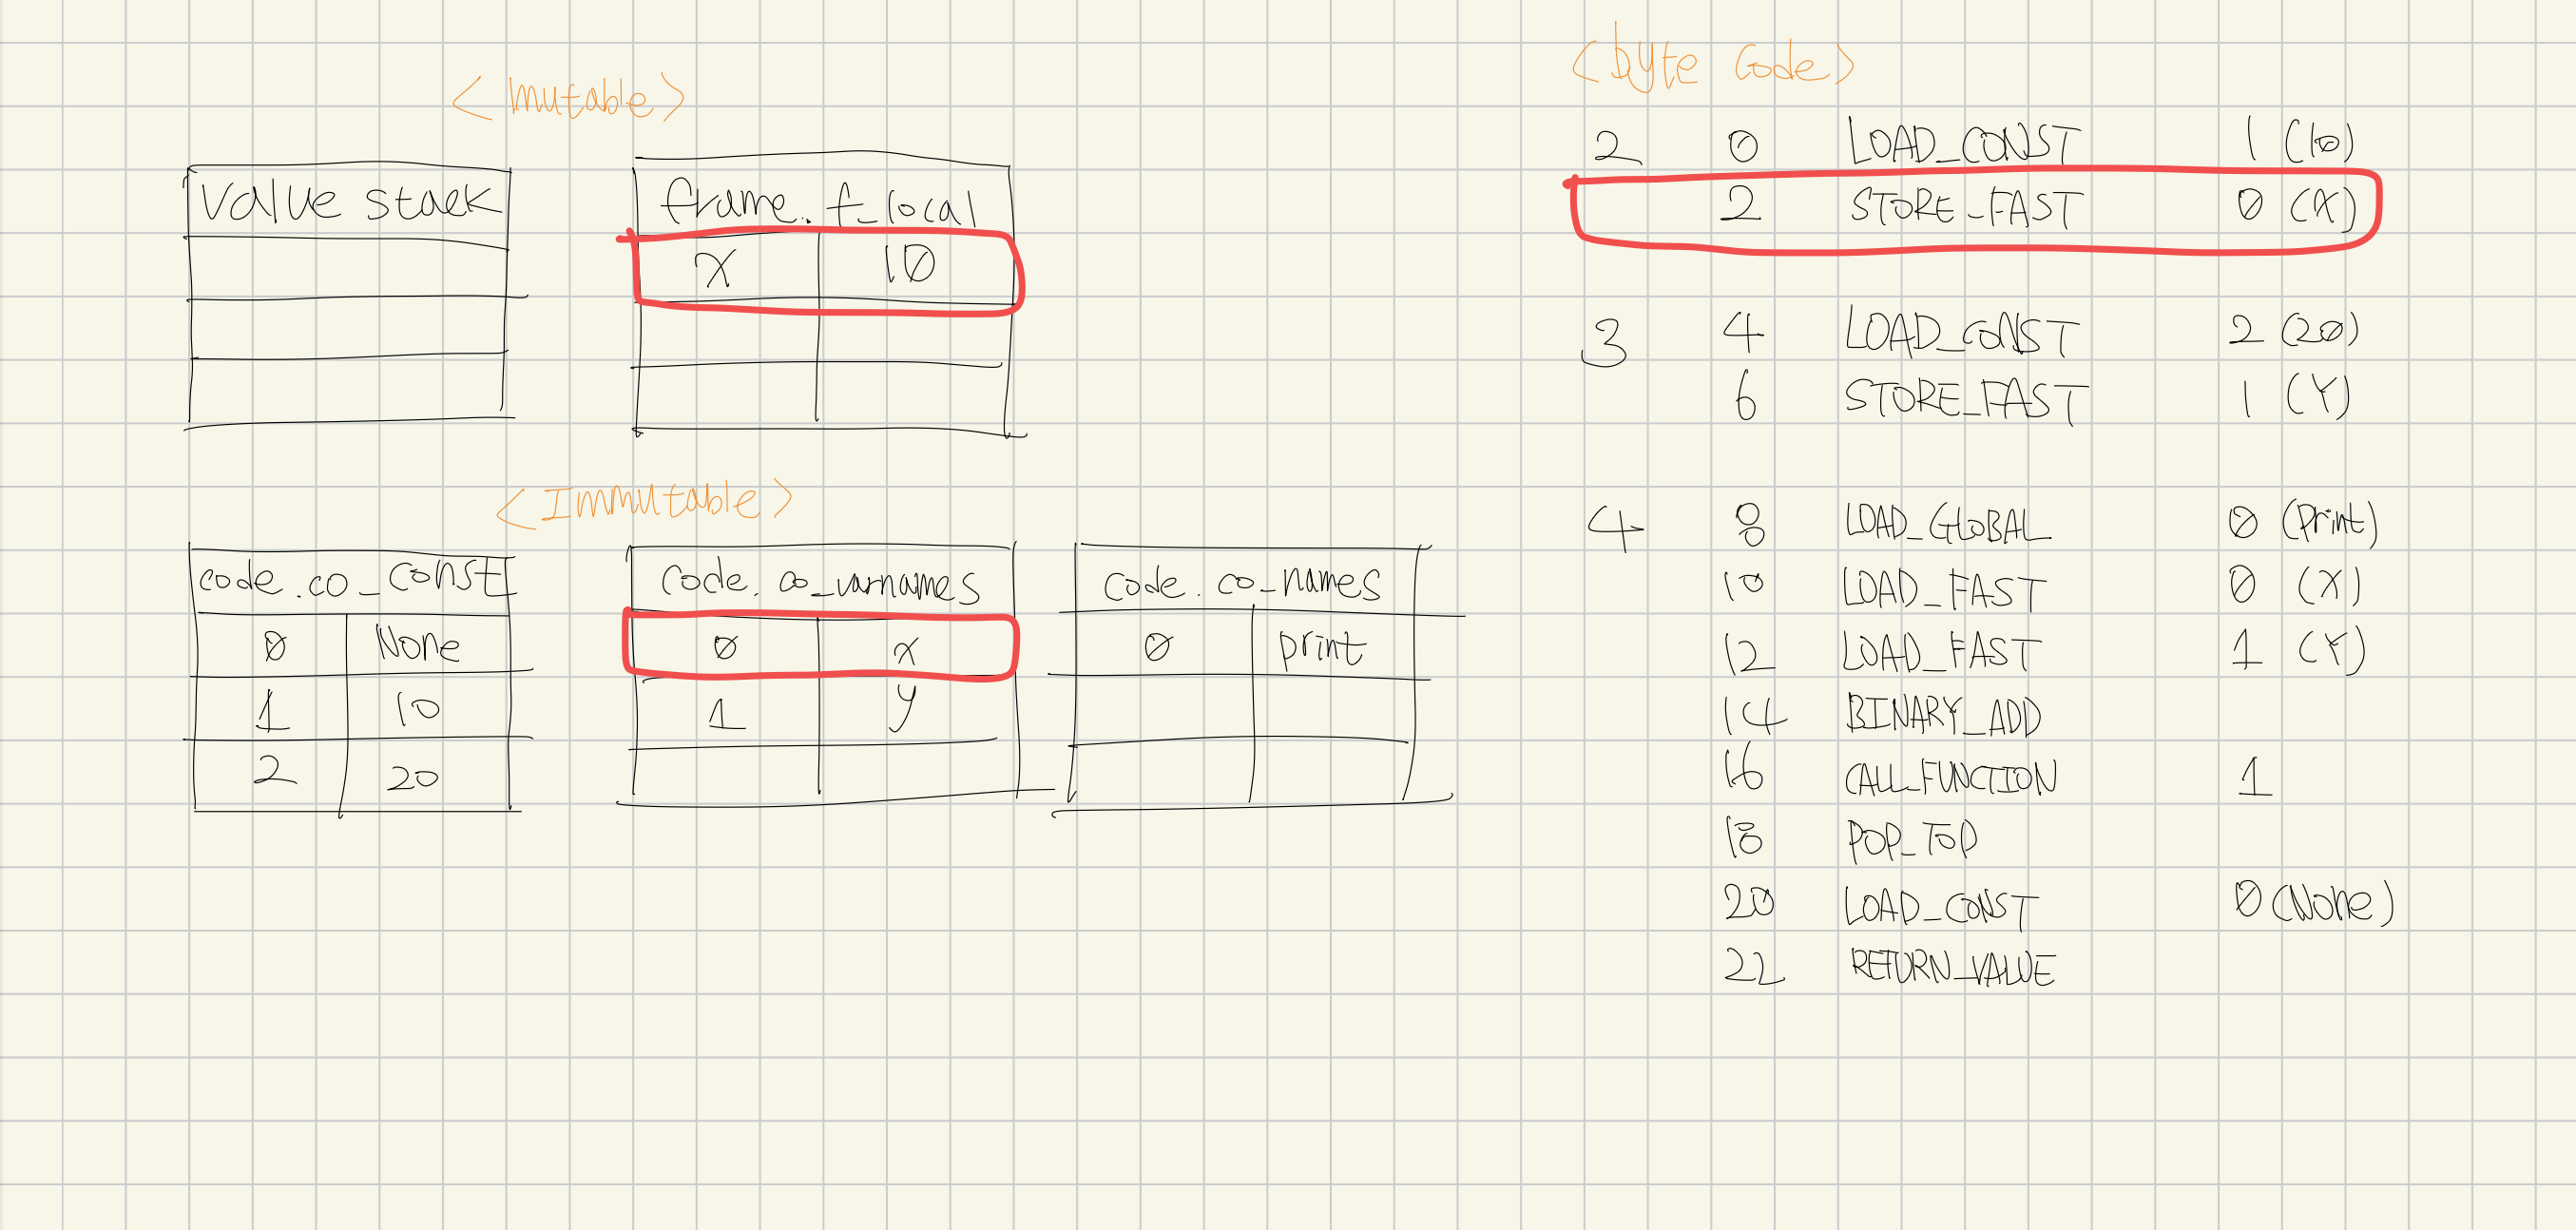 <Mutable>
Value stack
frame. f_local
x 10
<Immutable>
code.co_const
0 None
1 10
2 20
code. co_varnames
0 x
1 y
code. co_names
0 print
<byte code>
2 0 LOAD_CONST 1 (10)
2 STORE_FAST 0 (X)
3 4 LOAD_CONST 2 (20)
6 STORE_FAST 1 (Y)
4 8 LOAD_GLOBAL 0 (print)
10 LOAD_FAST 0 (X)
12 LOAD_FAST 1 (Y)
14 BINARY_ADD
16 CALL_FUNCTION 1
18 POP_TOP
20 LOAD_CONST 0 (None)
22 RETURN_VALUE